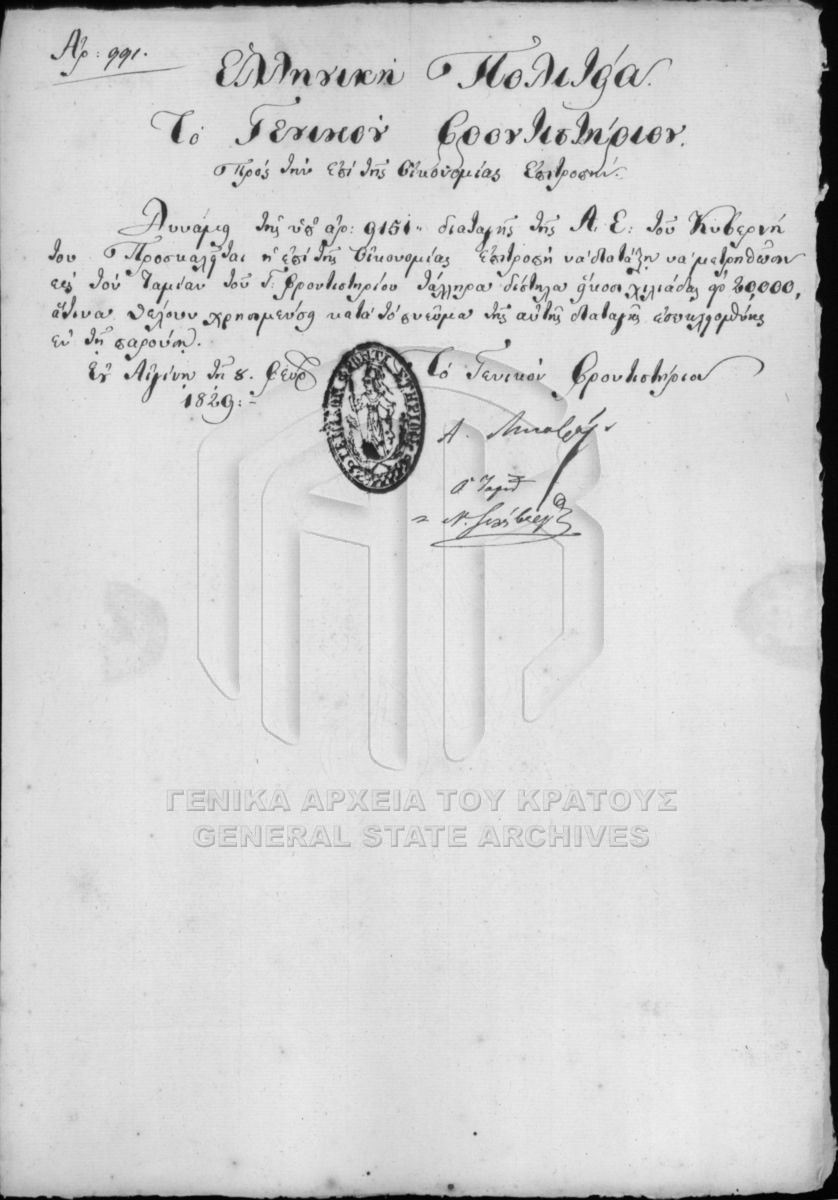 Ἀρ: 991.
Ἑλληνικὴ Πολιτεία.
Τὸ Γενικὸν Φροντιστήριον.
Πρὸς τὴν ἐπὶ τῆς Οἰκονομίας Ἐπιτροπήν.
Δυνάμει τῆς ὑπ' ἀρ: 9151 διαταγῆς τῆς Α. Ε: τοῦ Κυβερνή
του Προσκαλεῖται ἡ ἐπὶ τῆς Οἰκονομίας Ἐπιτροπὴ νὰ διατάξῃ νὰ μετρηθῶσιν
εἰς τὸν Ταμίαν τοῦ Γ: Φροντιστηρίου τάλληρα δίστηλα εἴκοσι χιλιάδες 20,000,
ἅτινα θέλουν χρησιμεύσει κατὰ τὸ πνεῦμα τῆς αὐτῆς διαταγῆς
ἐν τῇ παρούσῃ.
Ἐν Αἰγίνῃ τῇ 8. Φευρ
1829:
Τὸ Γενικὸν Φροντιστήριον
Α.
ΓΕΝΙΚΟΝ ΦΡΟΝΤΙΣΤΗΡΙΟΝ
ΓΕΝΙΚΑ ΑΡΧΕΙΑ ΤΟΥ ΚΡΑΤΟΥΣ
GENERAL STATE ARCHIVES